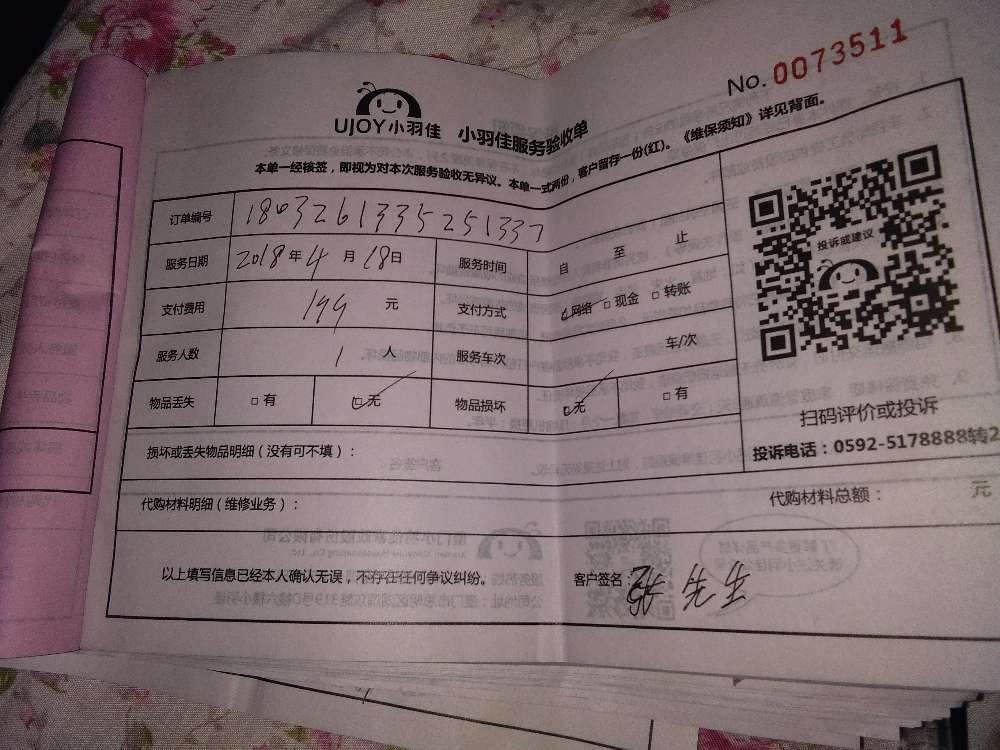 No. 0073511
UJOY小羽佳 小羽佳服务验收单
本单一经核签，即视为对本次服务验收无异议。本单一式两份，客户留存一份(红)。《维保须知》详见背面。
订单编号 1803261335251337
服务日期 2018年4月18日 服务时间 自 至 止
支付费用 199 元 支付方式 ☑网络 □现金 □转账
服务人数 1 人 服务车次 车/次
物品丢失 □有 ☑无 物品损坏 ☑无 □有
投诉或建议
扫码评价或投诉
投诉电话：0592-5178888转2
损坏或丢失物品明细（没有可不填）：
代购材料明细（维修业务）： 代购材料总额： 元
以上填写信息已经本人确认无误，不存在任何争议纠纷。 客户签名：张先生